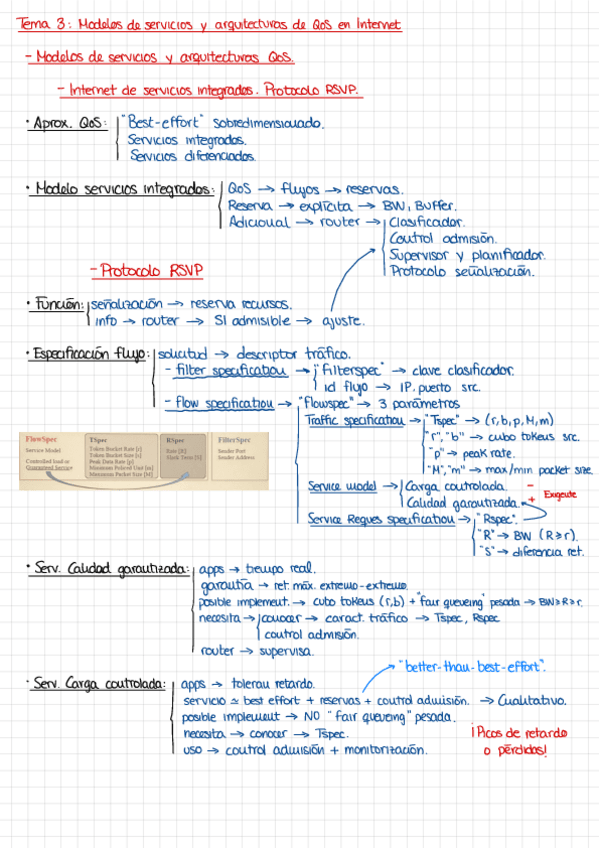 Tema 3: Modelos de servicios y arquitecturas de QoS en Internet
- Modelos de servicios y arquitecturas QoS.
- Internet de servicios integrados. Protocolo RSVP.
· Aprox. QoS: "Best-effort" sobredimensionado.
Servicios integrados.
Servicios diferenciados.
· Modelo servicios integrados: QoS → flujos → reservas.
Reserva → explícita → BW, Buffer.
Adicional → router → Clasificador.
Control admisión.
Supervisor y planificador.
Protocolo señalización.
- Protocolo RSVP
· Función: señalización → reserva recursos.
info → router → SI admisible → ajuste.
· Especificación flujo: solicitud → descriptor tráfico.
- filter specification → "Filterspec" → clave clasificador.
id flujo → IP, puerto src.
- flow specification → "flowspec" → 3 parámetros
Traffic specification → "Tspec" → (r,b,p,M,m)
"r", "b" → cubo tokens src.
"p" → peak rate.
"M", "m" → max/min packet size.
Service model → Carga controlada. -
Calidad garantizada. + Exigente
Service Reques specification → "Rspec".
"R" → BW (R≥r).
"S" → diferencia ret.
FlowSpec
Service Model
Controlled load or
Guaranteed Service
TSpec
Token Bucket Rate [r]
Token Bucket Size [b]
Peak Data Rate [p]
Minimum Policed Unit [m]
Maximum Packet Size [M]
RSpec
Rate [R]
Slack Term [S]
FilterSpec
Sender Port
Sender Address
· Serv. Calidad garantizada: apps → tiempo real.
garantía → ret. máx. extremo-extremo.
posible implement. → cubo tokens (r,b) + "fair queueing" pesada → BW≥R≥r.
necesita → conocer → caract. tráfico → Tspec, Rspec
control admisión.
router → supervisa.
"better-than-best-effort".
· Serv. Carga controlada: apps → toleran retardo.
servicio ≃ best effort + reservas + control admisión. → Cualitativo.
posible implement → NO "fair queueing" pesada.
necesita → conocer → Tspec.
uso → control admisión + monitorización.
¡Picos de retardo
o pérdidas!